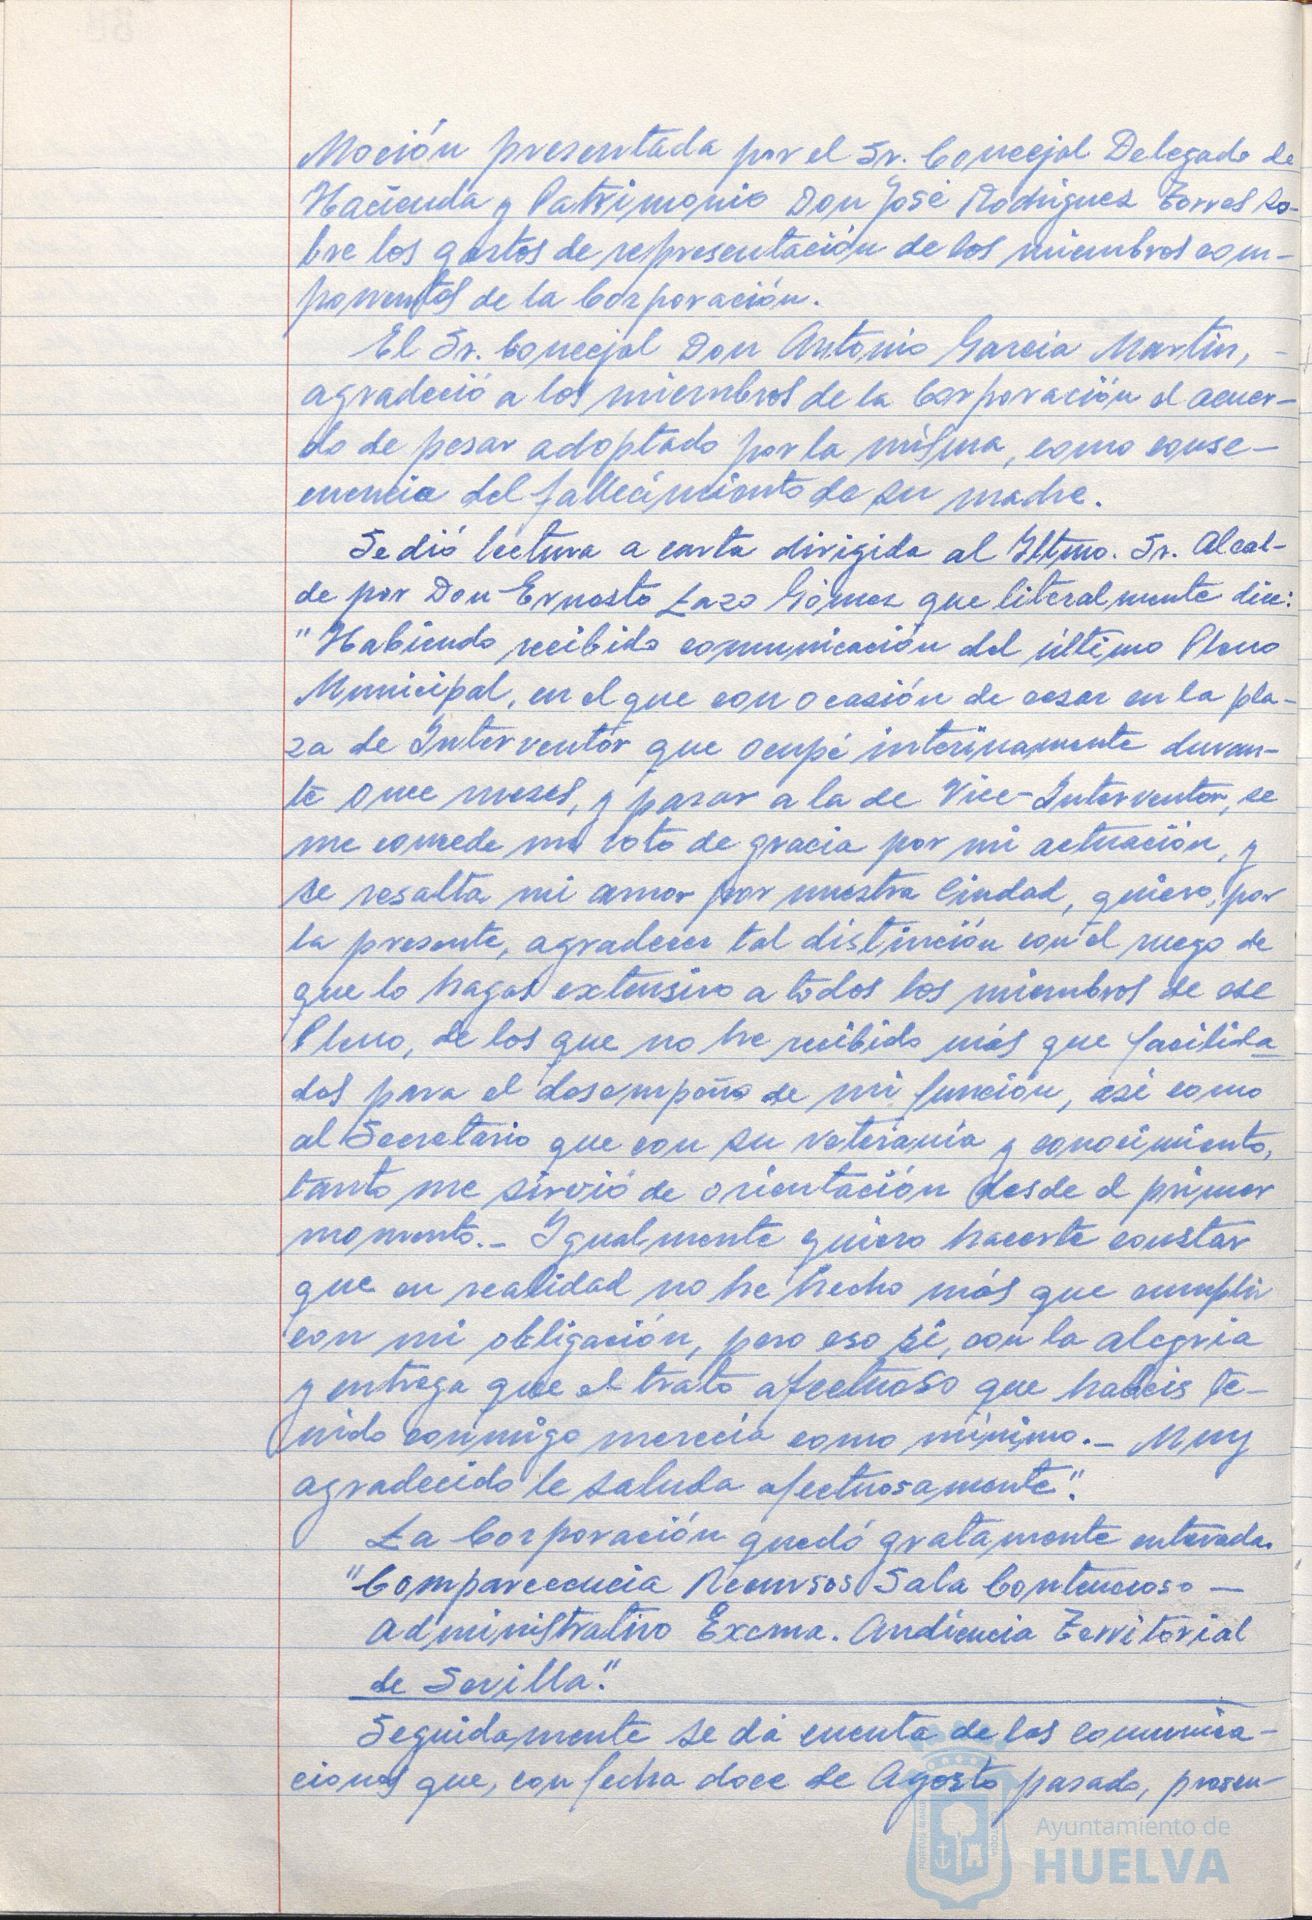 Moción presentada por el Sr. Concejal Delegado de
Hacienda y Patrimonio Don José Rodríguez Torres so-
bre los gastos de representación de los miembros com-
ponentes de la Corporación.
El Sr. Concejal Don Antonio García Martín, -
agradeció a los miembros de la Corporación el acuer-
do de pesar adoptado por la misma, como conse-
cuencia del fallecimiento de su madre.
Se dió lectura a carta dirigida al Iltmo. Sr. Alcal-
de por Don Ernesto Lazo Gómez que literalmente dice:
"Habiendo recibido comunicación del último Pleno
Municipal, en el que con ocasión de cesar en la pla-
za de Interventor que ocupé interinamente duran-
te once meses, y pasar a la de Vice-Interventor, se
me concede un voto de gracia por mi actuación, y
se resalta mi amor por nuestra Ciudad, quiero, por
la presente, agradecer tal distinción con el ruego de
que lo hagas extensivo a todos los miembros de ese
Pleno, de los que no he recibido más que facilida
des para el desempeño de mi función, así como
al Secretario que con su veteranía y conocimiento,
tanto me sirvió de orientación desde el primer
momento.- Igualmente quiero hacerte constar
que en realidad no he hecho más que cumplir
con mi obligación, pero eso sí, con la alegría
y entrega que el trato afectuoso que habeis te-
nido conmigo merecía como mínimo.- Muy
agradecido le saluda afectuosamente".
La Corporación quedó gratamente enterada.
"Comparecencia Recursos Sala Contencioso -
Administrativo Excma. Audiencia Territorial
de Sevilla."
Seguidamente se da cuenta de las comunica-
ciones que, con fecha doce de Agosto pasado, presen-
Ayuntamiento de
HUELVA